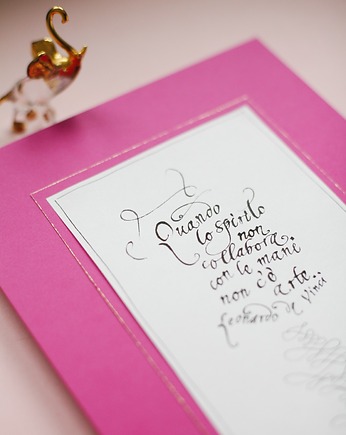 Quando
lo spirito
non
collabora
con le mani
non c'è arte.
Leonardo da Vinci